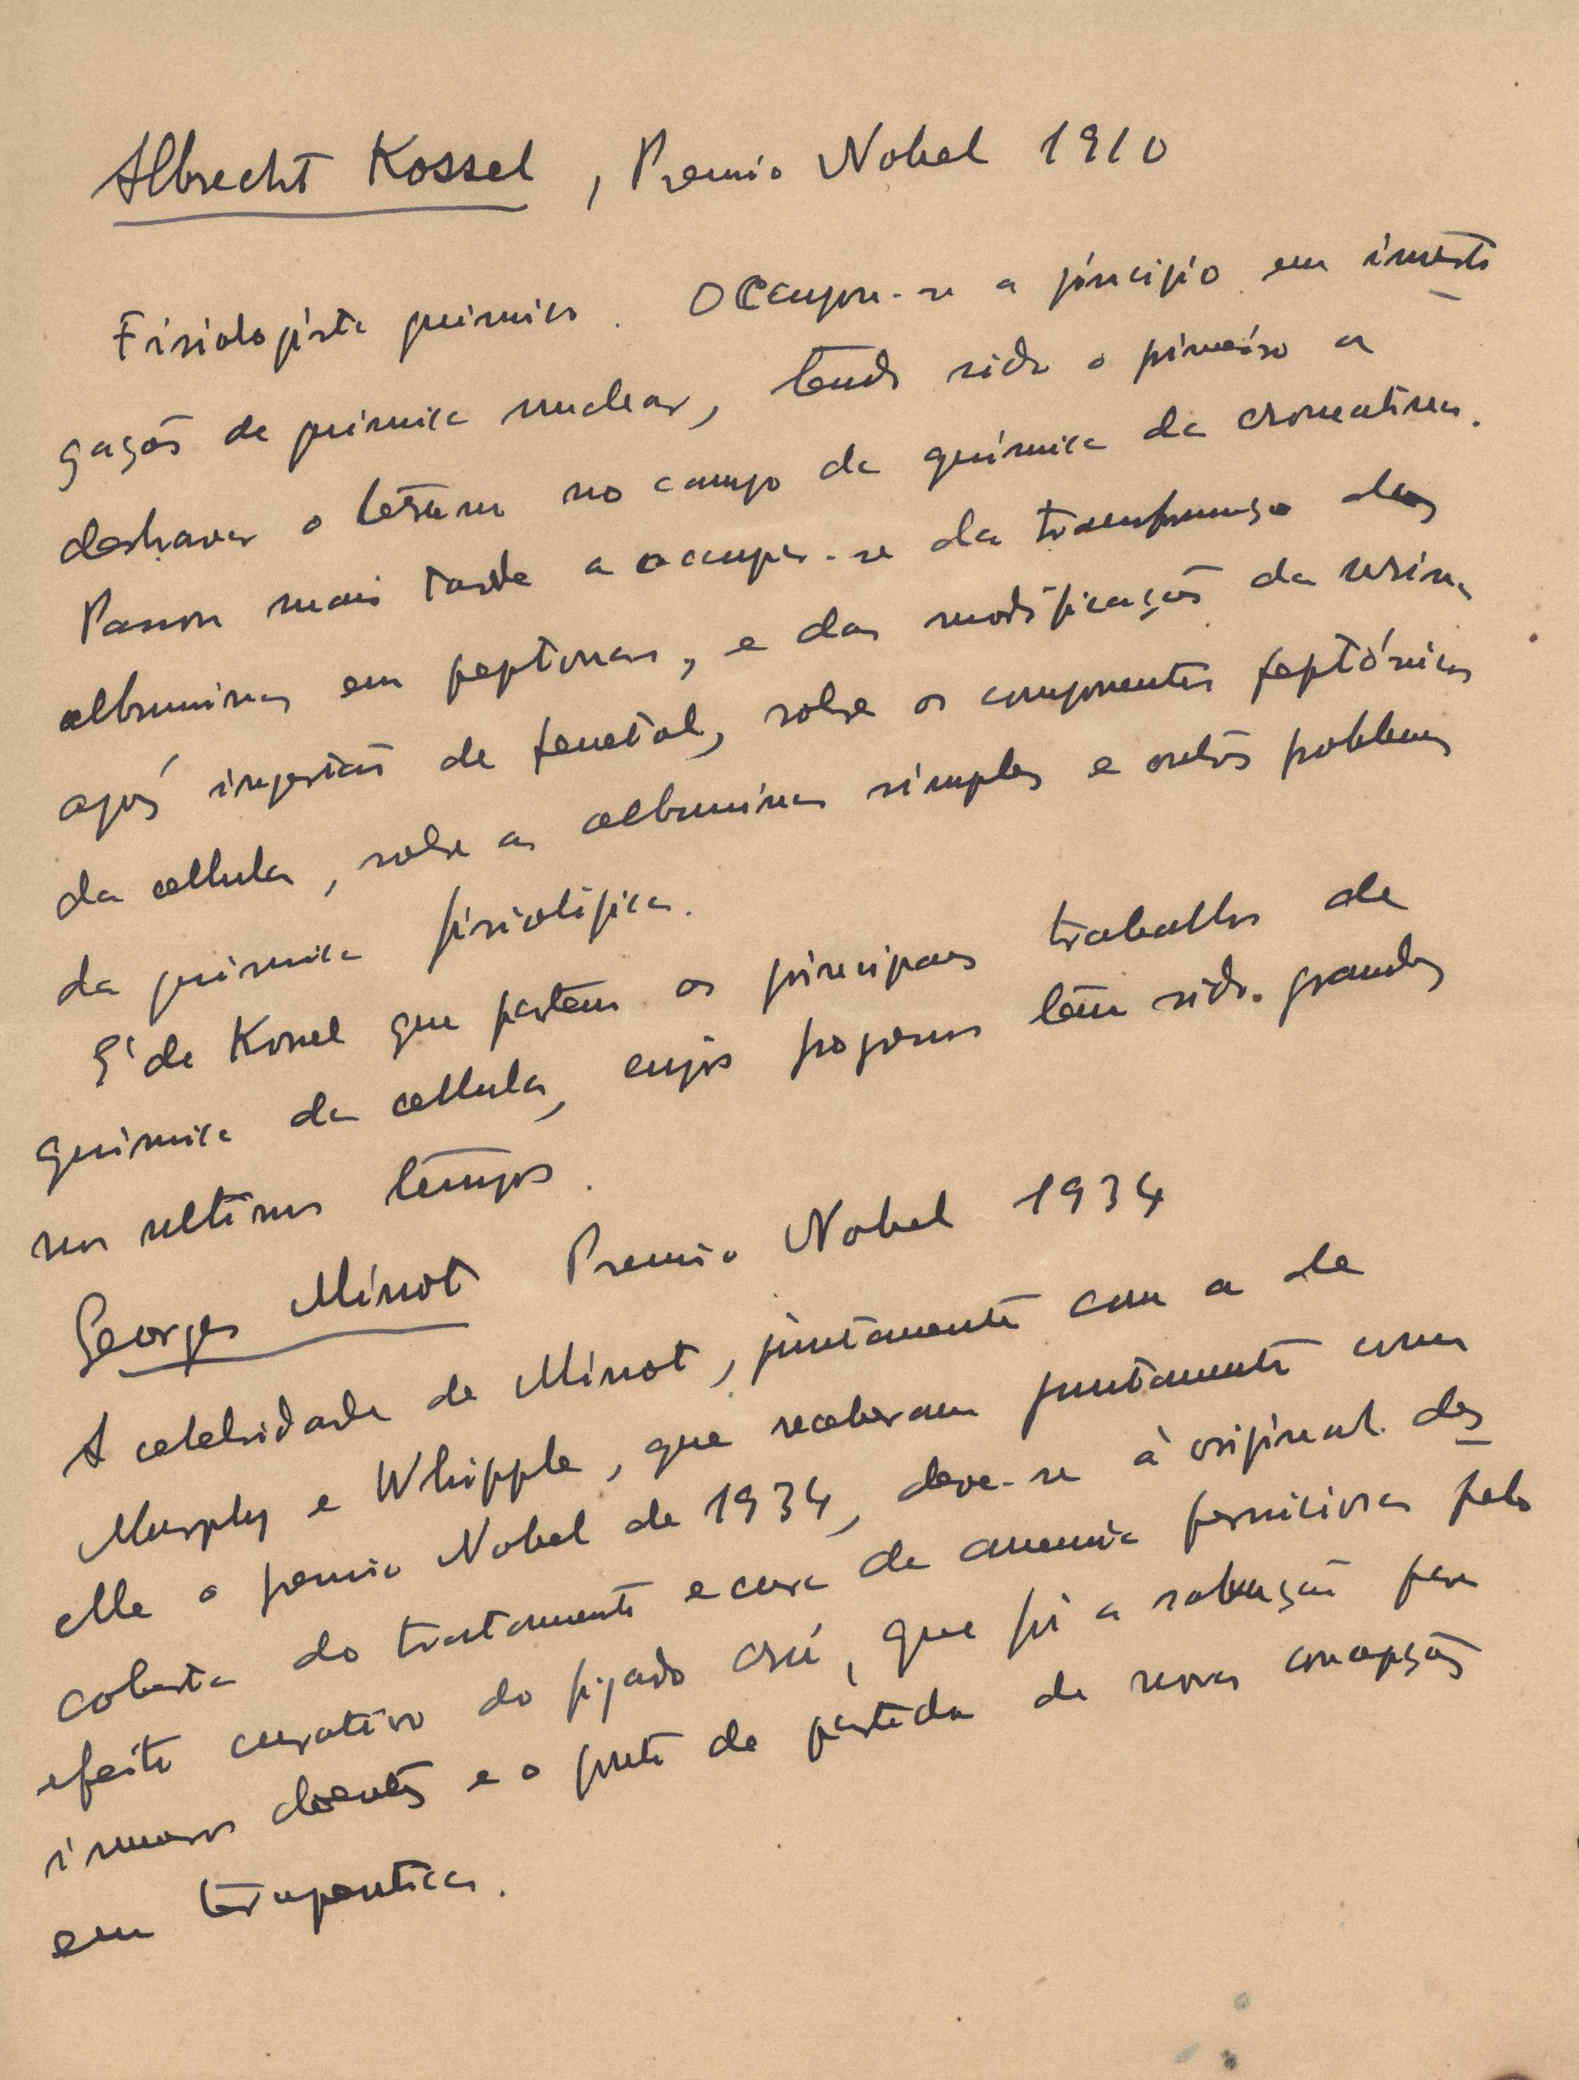 Albrecht Kossel, Premio Nobel 1910
Fisiologista quimico. Occupou-se a principio em investi
gações de quimica nuclear, tendo sido o primeiro a
desbravar o terreno no campo da química da cromatina.
Passou mais tarde a occupar-se da transformação das
albuminas em peptonas, e das modificações da urina
após ingestão de fenetol, sobre os componentes peptónicos
da cellula, sobre as albuminas simples e outros problemas
da quimica fisiológica.
E' de Kossel que partem os principaes trabalhos de
quimica da cellula, cujos progressos têm sido grandes
nos ultimos tempos.
Georges Minot Premio Nobel 1934
A celebridade de Minot, juntamente com a de
Murphy e Whipple, que receberam juntamente com
elle o premio Nobel de 1934, deve-se à original des
coberta do tratamento e cura da anemia perniciosa pelo
efeito curativo do figado crú, que foi a salvação para
inumeros doentes e o ponto de partida de novas concepções
em terapeutica.